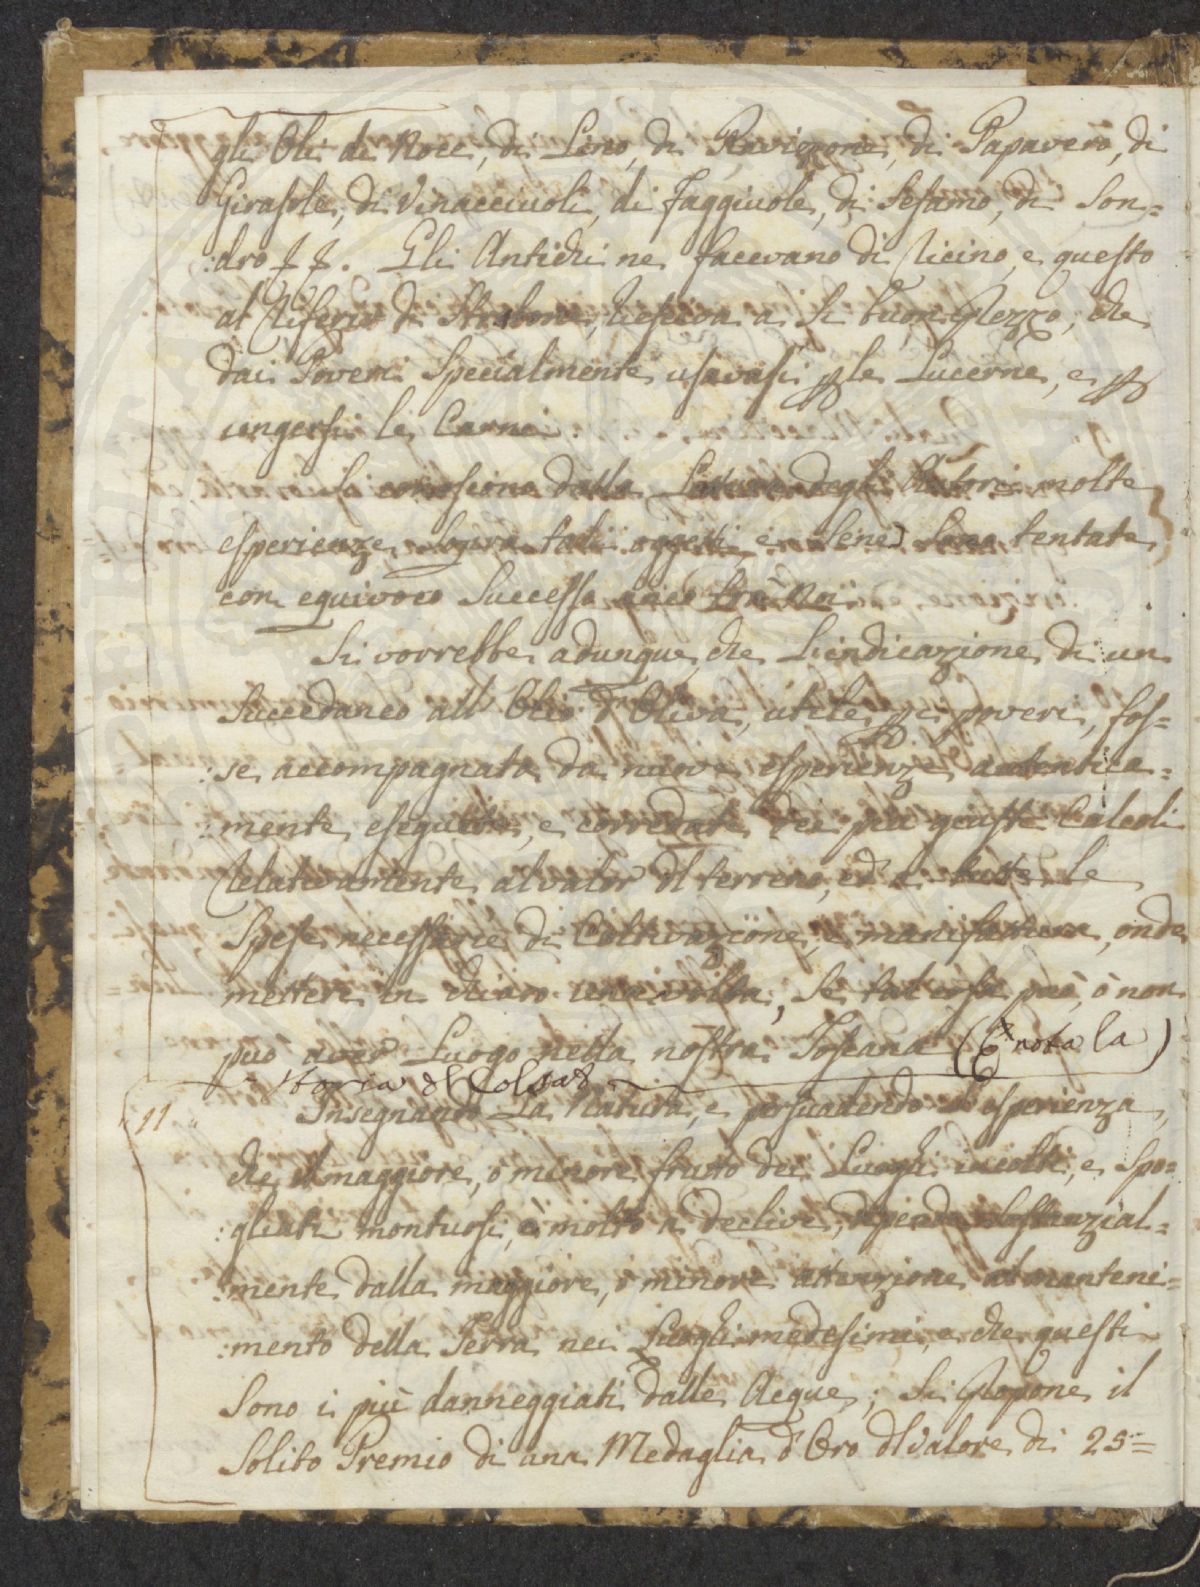 gli Oli di Noce, di Lino, di Ravizzone, di Papavero, di
Girasole, di Vinacciuoli, di Faggiuole, di Sesamo, di Son=
:dro ff. Gli Antichi ne facevano di Ricino, e questo
al Riferir di Strabone, a si buon Prezzo, che
dai Poveri Specialmente usavasi p le Lucerne, e p
ungersi le Carni.
Si conoscono dalla Lettura degli Autori molte
esperienze sopra tali oggetti, e sene sono tentate
con equivoco Successo anco frà Noi.
Si vorrebbe adunque, che L'indicazione di un
Succedaneo all'Olio d'Oliva, utile p i poveri, fos=
:se accompagnata da nuove esperienze autentica=
:mente eseguite, e corredate dei più giusti Calcoli
Relativamente al valor dl terreno, ed a tutte le
Spese necessarie di Coltivazione, e manifattura, onde
mettere in chiaro una volta, Se tal cosa può, ò non
può aver Luogo nella nostra Toscana (È nota la)
storia dl Colsat
11 Insegnando La Natura, e persuadendo L'esperienza,
che il maggiore, ò minore frutto dei Luoghi incolti, e Spo=
:gliati montuosi, ò molto a declive, dipenda essenzial=
:mente dalla maggiore, ò minore attenzione al manteni=
:mento della Terra nei Luoghi medesimi, e che questi
Sono i più danneggiati dalle Acque; Si Propone il
Solito Premio di una Medaglia d'Oro dl Valore di 25=